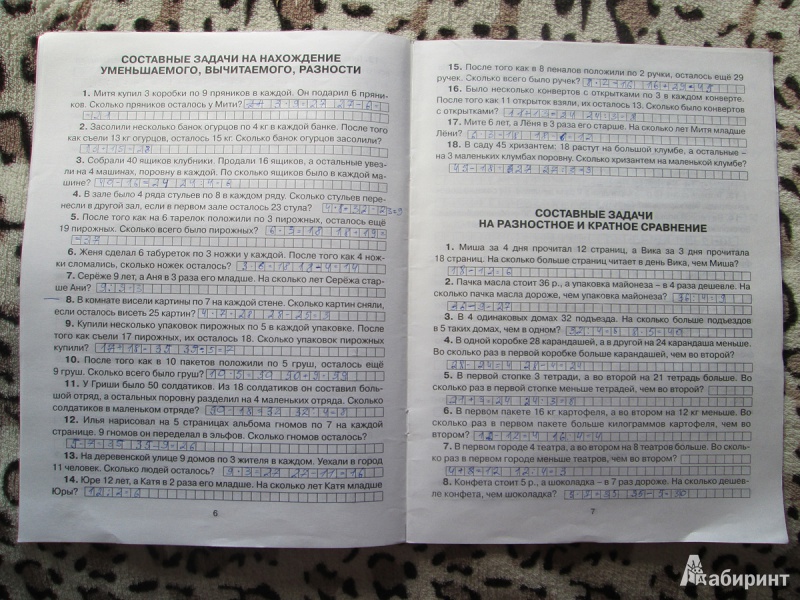 СОСТАВНЫЕ ЗАДАЧИ НА НАХОЖДЕНИЕ
УМЕНЬШАЕМОГО, ВЫЧИТАЕМОГО, РАЗНОСТИ
1. Митя купил 3 коробки по 9 пряников в каждой. Он подарил 6 пряни-
ков. Сколько пряников осталось у Мити?
2. Засолили несколько банок огурцов по 4 кг в каждой банке. После того
как съели 13 кг огурцов, осталось 15 кг. Сколько банок огурцов засолили?
3. Собрали 40 ящиков клубники. Продали 16 ящиков, а остальные увез-
ли на 4 машинах, поровну в каждой. По сколько ящиков было в каждой ма-
шине?
4. В зале было 4 ряда стульев по 8 в каждом ряду. Сколько стульев пере-
несли в другой зал, если в первом зале осталось 23 стула?
5. После того как на 6 тарелок положили по 3 пирожных, осталось ещё
19 пирожных. Сколько всего было пирожных? 6·3=18 18+19=
=37
6. Женя сделал 6 табуреток по 3 ножки у каждой. После того как 4 нож-
ки сломались, сколько ножек осталось?
7. Серёже 9 лет, а Аня в 3 раза его младше. На сколько лет Серёжа стар-
ше Ани?
8. В комнате висели картины по 7 на каждой стене. Сколько картин сняли,
если осталось висеть 25 картин?
9. Купили несколько упаковок пирожных по 5 в каждой упаковке. После
того как съели 17 пирожных, их осталось 18. Сколько упаковок пирожных
купили?
10. После того как в 10 пакетов положили по 5 груш, осталось ещё
9 груш. Сколько всего было груш?
11. У Гриши было 50 солдатиков. Из 18 солдатиков он составил боль-
шой отряд, а остальных поровну разделил на 4 маленьких отряда. Сколько
солдатиков в маленьком отряде?
12. Илья нарисовал на 5 страницах альбома гномов по 7 на каждой
странице. 9 гномов он переделал в эльфов. Сколько гномов осталось?
13. На деревенской улице 9 домов по 3 жителя в каждом. Уехали в город
11 человек. Сколько людей осталось? 9·3=27 27-11=16
14. Юре 12 лет, а Катя в 2 раза его младше. На сколько лет Катя младше
Юры? 12:2=6
6
15. После того как в 8 пеналов положили по 2 ручки, осталось ещё 29
ручек. Сколько всего было ручек?
16. Было несколько конвертов с открытками по 3 в каждом конверте.
После того как 11 открыток взяли, их осталось 13. Сколько было конвертов
с открытками? 11+13=24 24:3=8
17. Мите 6 лет, а Лёня в 3 раза его старше. На сколько лет Митя младше
Лёни?
18. В саду 45 хризантем: 18 растут на большой клумбе, а остальные –
на 3 маленьких клумбах поровну. Сколько хризантем на маленькой клумбе?
45-18=27 27:3=9
СОСТАВНЫЕ ЗАДАЧИ
НА РАЗНОСТНОЕ И КРАТНОЕ СРАВНЕНИЕ
1. Миша за 4 дня прочитал 12 страниц, а Вика за 3 дня прочитала
18 страниц. На сколько больше страниц читает в день Вика, чем Миша?
18-12=6
2. Пачка масла стоит 36 р., а упаковка майонеза – в 4 раза дешевле. На
сколько пачка масла дороже, чем упаковка майонеза? 36:4=9
3. В 4 одинаковых домах 32 подъезда. На сколько больше подъездов
в 5 таких домах, чем в одном? 32:4=8 8·5=40
4. В одной коробке 28 карандашей, а в другой на 24 карандаша меньше.
Во сколько раз в первой коробке больше карандашей, чем во второй?
5. В первой стопке 3 тетради, а во второй на 21 тетрадь больше. Во
сколько раз в первой стопке меньше тетрадей, чем во второй?
21+3=24 24:3=8
6. В первом пакете 16 кг картофеля, а во втором на 12 кг меньше. Во
сколько раз в первом пакете больше килограммов картофеля, чем во
втором?
7. В первом городе 4 театра, а во втором на 8 театров больше. Во сколь-
ко раз в первом городе меньше театров, чем во втором?
4+8=12 12:4=3
8. Конфета стоит 5 р., а шоколадка – в 7 раз дороже. На сколько дешев-
ле конфета, чем шоколадка? 5·7=35 35-5=30
7
Лабиринт